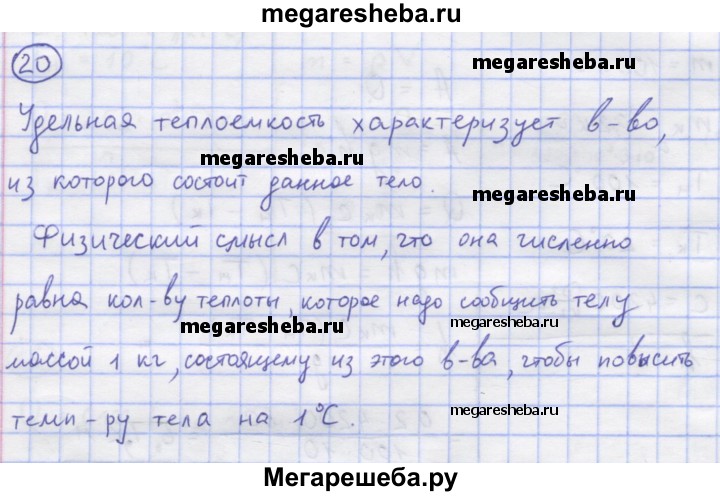 megaresheba.ru
20
megaresheba.ru
Удельная теплоемкость характеризует в-во,
megaresheba.ru
из которого состоит данное тело.
megaresheba.ru
Физический смысл в том, что она численно
равна кол-ву теплоты, которое надо сообщить телу
megaresheba.ru
megaresheba.ru
массой 1 кг, состоящему из этого в-ва, чтобы повысить
темп-ру тела на 1°С.
megaresheba.ru
Мегарешеба.ру